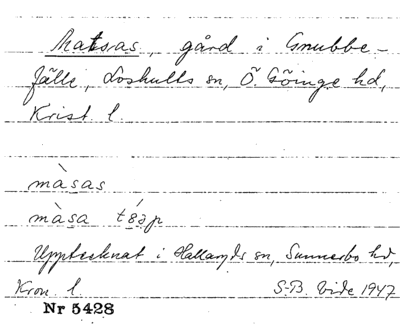 Matsas, gård i Gnubbe-
fälle, Loshults sn, Ö. Göinge hd,
Krist. l.
màsas
màsa
Upptecknat i Hallaryds sn, Sunnerbo hd,
Kron. l. S-B. Vide 1947
Nr 5428